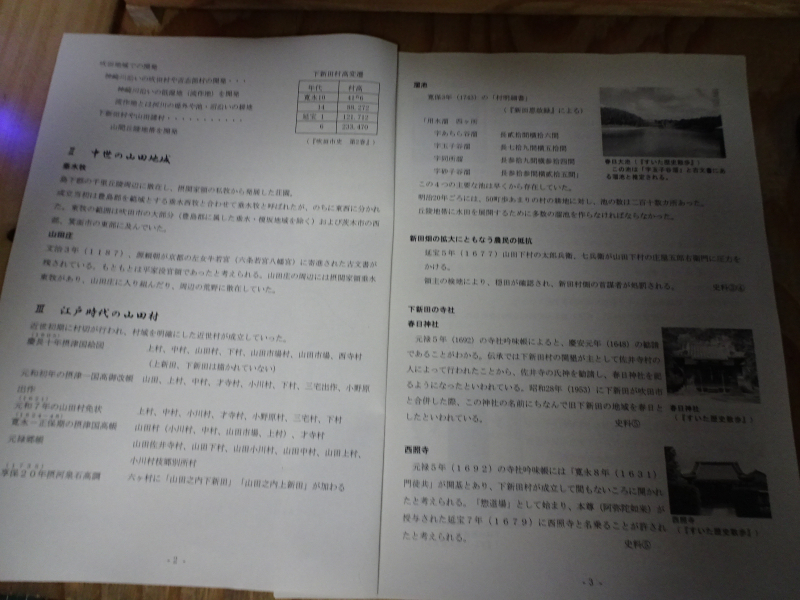 吹田地域での開発
神崎川沿いの吹田村や吉志部村の開発・・・
神崎川沿いの低湿地（流作地）を開発
流作地とは河川の堤外や池・沼沿いの耕地
下新田村や山田諸村・・・・・・・・・・・
山間丘陵地帯を開発
下新田村高変遷
年代 村高
寛永19
14 86.272
延宝1 121.712
6 233.470
（『吹田市史 第2巻』）
Ⅱ 中世の山田地域
垂水牧
島下郡の千里丘陵周辺に散在し、摂関家領の私牧から発展した荘園。
成立当初は豊島郡を範域とする垂水西牧と合わせて垂水牧と呼ばれたが、のちに東西に分かれ
た。東牧の範囲は吹田市の大部分（豊島郡に属した垂水・榎坂地域を除く）および茨木市の西
部、箕面市の東部に及んでいた。
山田庄
文治3年（1187）、源頼朝が京都の左女牛若宮（六条若宮八幡宮）に寄進された古文書が
残されている。もともとは平家没官領であったと考えられる。山田庄の周辺には摂関家領垂水
東牧があり、山田庄に入り組んだり、周辺の荒野に散在していた。
Ⅲ 江戸時代の山田村
近世初期に村切が行われ、村域を明確にした近世村が成立していった。
慶長十年摂津国絵図 上村、中村、山田村、下村、山田市場村、山田市場、西寺村
（上新田、下新田は描かれていない）
元和初年の摂津一国高御改帳 山田、上村、中村、才寺村、小川村、下村、三宅出作、小野原
出作
元和7年の山田村免状 上村、中村、小川村、才寺村、小野原村、三宅村、下村
寛永～正保期の摂津国高帳 山田村（小川村、中村、山田市場、上村）、才寺村
元禄郷帳 山田佐井寺村、山田下村、山田小川村、山田中村、山田上村、
小川村枝郷別所村
享保20年摂河泉石高調 六ヶ村に「山田之内下新田」「山田之内上新田」が加わる
- 2 -
溜池
寛保3年（1743）の「村明細書」
（『新田悲故録』による）
「用水溜 四ヶ所
字あちら谷溜 長貳拾間横拾六間
字玉子谷溜 長七拾九間横五拾間
字同所溜 長参拾九間横参拾四間
字砂子谷溜 長参拾九間横貳拾五間」
この4つの主要な池は早くから存在していた。
明治20年ごろには、50町歩あまりの村の耕地に対し、池の数は二百十数カ所あった。
丘陵地帯に水田を展開するために多数の溜池を作らなければならなかった。
春日大池（『すいた歴史散歩』）
この池は「字玉子谷溜」と古文書にあ
る溜池と推定される。
新田畑の拡大にともなう農民の抵抗
延宝5年（1677）山田下村の太郎兵衛、七兵衛が山田下村の庄屋五郎右衛門に圧力を
かける。
領主の検地により、隠田が確認され、新田村側の首謀者が処罰される。 史料③④
下新田の寺社
春日神社
元禄5年（1692）の寺社吟味帳によると、慶安元年（1648）の勧請
であることがわかる。伝承では下新田村の開墾が主として佐井寺村の
人によって行われたことから、佐井寺の氏神を勧請し、春日神社を祀
るようになったといわれている。昭和28年（1953）に下新田が吹田市
と合併した際、この神社の名前にちなんで旧下新田の地域を春日と
したといわれている。 史料⑤
春日神社
（『すいた歴史散歩』）
西照寺
元禄5年（1692）の寺社吟味帳には「寛永8年（1631）
門徒共」が開基とあり、下新田村が成立して間もないころに開かれ
たと考えられる。「惣道場」として始まり、本尊（阿弥陀如来）が
授与された延宝7年（1679）に西照寺と名乗ることが許され
たと考えられる。 史料⑤
西照寺
（『すいた歴史散歩』）
- 3 -